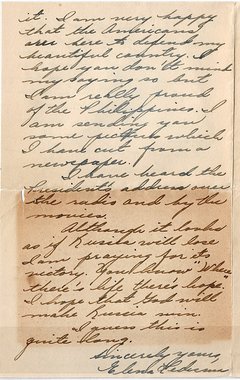 it. I am very happy
that the Americans
are here to defend my
beautiful country. I
hope you don't mind
my saying so but
I am really proud
of the Philippines. I
am sending you
some pictures which
I have cut from a
newspaper.
I have heard the
President's address over
the radio and by the
movies.
Although it looks
as if Russia will lose
I am praying for its
victory. You know "Where
there's life there's hope."
I hope that God will
make Russia win.
I guess this is
quite long.
Sincerely yours,